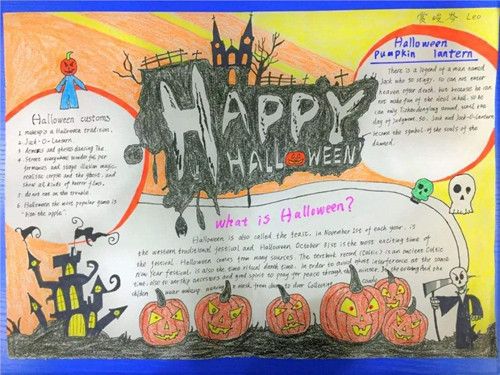 LEO
Halloween
pumpkin lantern
There is a legend of a man named
Jack who so stingy. so can not enter
heaven after death, but because he can
not make fun of the devil in hell, so he
can only lantern around, until the
day of judgment. So, Jack and Jack-O-Lantern
became the symbol of the souls of the
damned.
HAPPY
HALLOWEEN
Halloween customs
1. makeup is a Halloween tradition.
2. Jack-O-Lantern
3. and ghosts dancing The
Scream everywhere wonderful per
formances and stage illusion magic,
realistic corpse and the ghost. and
show all kinds of horror films.
7. do not in the trouble.
8. Halloween the most popular game is
the apple".
What is Halloween?
Halloween is also called the feast, in November 1st of each year, is
the western traditional festival and Halloween October 31st is the most exciting time of
the festival. Halloween comes from many sources. The textbook record (Celtic) is an ancient Celtic
New Year festival, is also the time ritual death time. in order to avoid ghost interference at the same
time, also to worship ancestors and and spirit to pray for peace through the winter. the evening And the
children wear makeup, masks from door to door Collecting